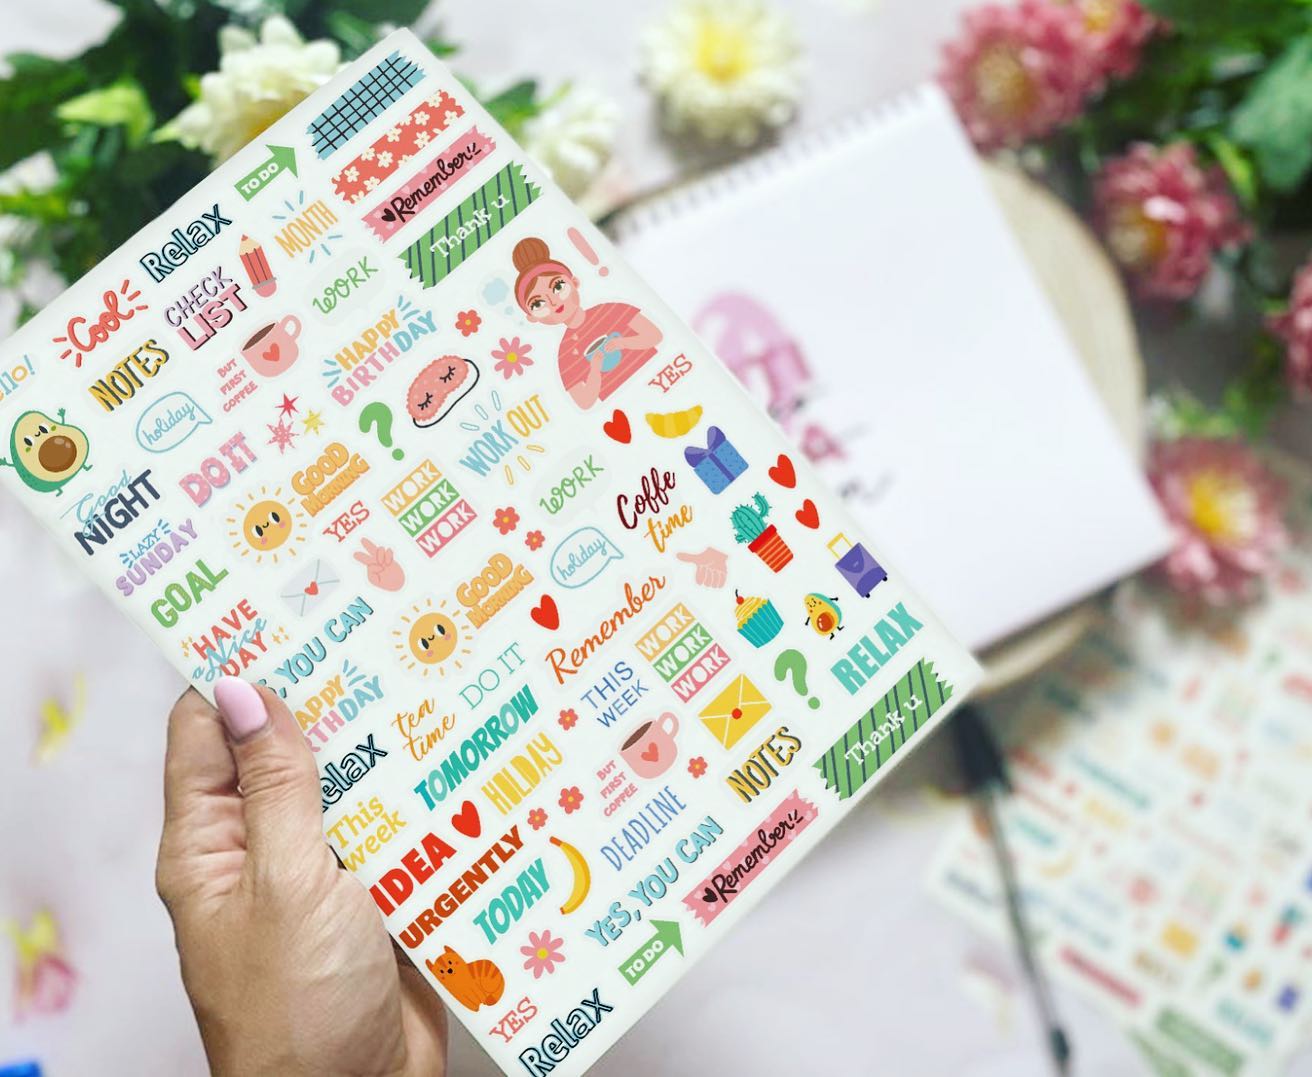 TO DO
Remember!!
Thank u
Relax
MONTH
Cool
CHECK
LIST
WORK
NOTES
BUT
FIRST
COFFEE
HAPPY
BIRTHDAY
YES
holiday
DO IT
WORK OUT
Good
NIGHT
GOOD
MORNING
WORK
WORK
WORK
WORK
Coffe
time
LAZY
SUNDAY
YES
GOAL
holiday
HAVE
a Nice
DAY
YOU CAN
GOOD
MORNING
Remember
WORK
WORK
WORK
RELAX
APPY
THDAY
tea
time
DO IT
THIS
WEEK
Thank u
elax
TOMORROW
This
week
HOLIDAY
BUT
FIRST
COFFEE
NOTES
IDEA
URGENTLY
DEADLINE
Remember!!
TODAY
YES, YOU CAN
TO DO
YES
Relax